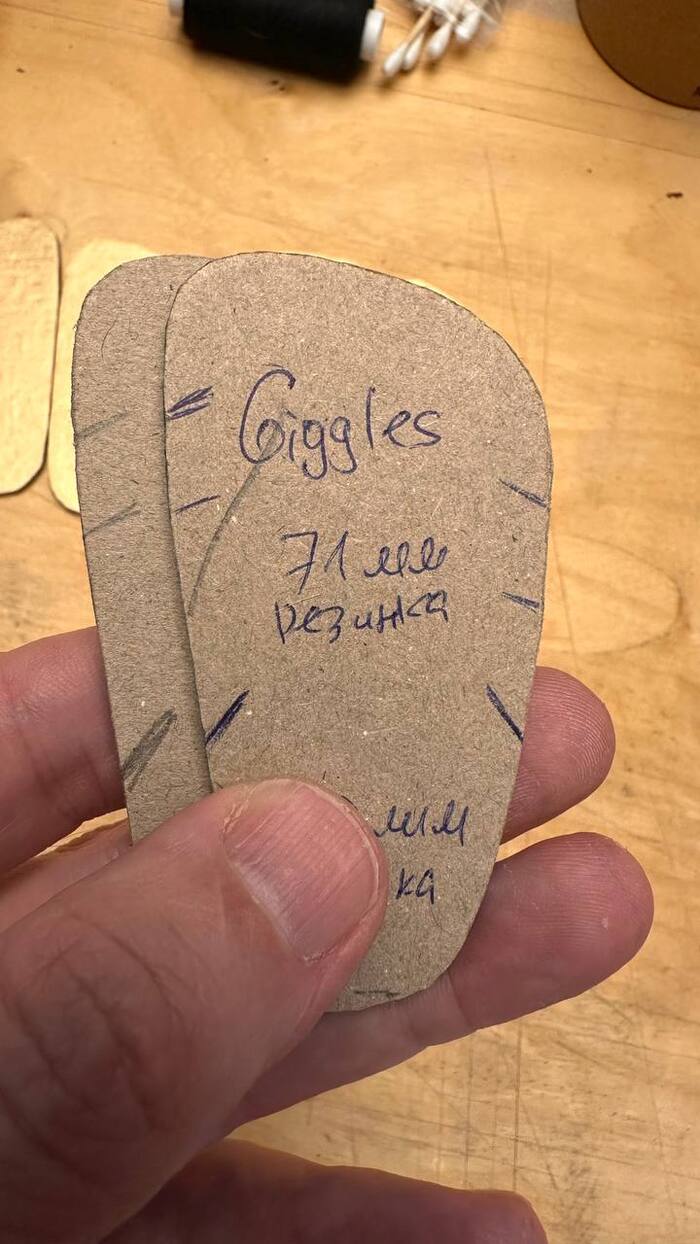 Giggles
71 мм
резинка
мм
ка